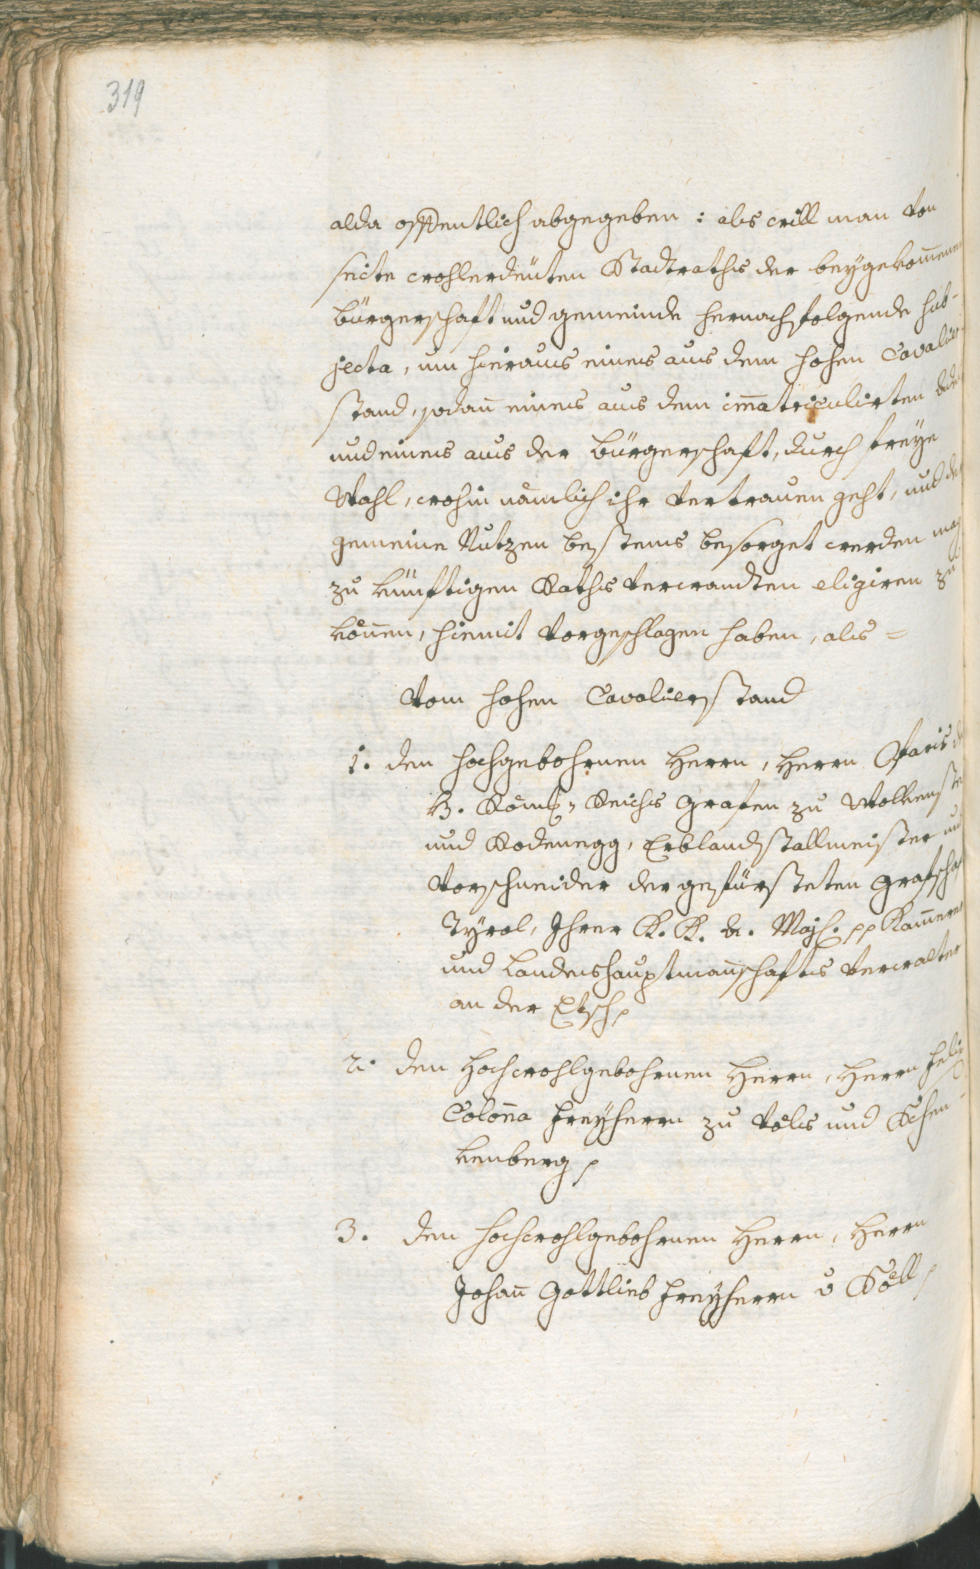 319
alda offentlich abgegeben: als will man von
seite wohlerdeüten Stadtraths der beÿgekom̅enen
bürgerschaft und gemeinde hernachfolgende sub-
jecta, um hieraus eines aus dem hohen Cavalier
stand, sodan̅ eines aus dem im̅atriculirten Adel
und eines aus der bürgerschaft, durch freÿe
Wahl, wohin nämlich ihr vertrauen geht, und der
gemeine Nutzen bestens besorget werden mag
zu künftigen Raths verwandten eligiren zu
kön̅en, hiemit vorgeschlagen haben, als =
Vom hohen Cavalierstand
1. den hochgebohrnen Herrn, Herrn Paris d
H. Röm: Reichs Grafen zu Wolkenstein
und Rodenegg, Erblandstallmeister und
Vorschneider der gefürsteten Grafschaft
Tÿrol, Ihrer K. K. A. Maj: pp Kam̅erer
und Landeshauptman̅schafts verwalter
an der Etsch,
2. den Hochwohlgebohrnen Herrn, Herrn Felix
Colon̅a Freÿherrn zu Völs und Schen-
kenberg,
3. den Hochwohlgebohrnen Herrn, Herrn
Johan̅ Gottlieb Freÿherrn v Köll,